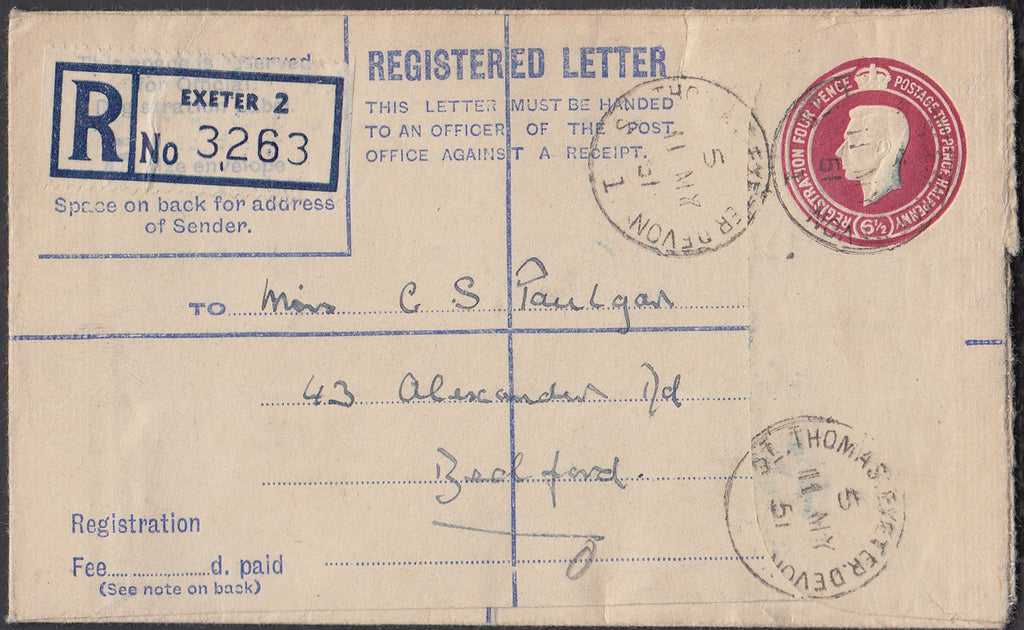 REGISTERED LETTER
THIS LETTER MUST BE HANDED
TO AN OFFICER OF THE POST
OFFICE AGAINST A RECEIPT.
R
EXETER 2
No 3263
Space on back for address
of Sender.
REGISTRATION FOUR PENCE POSTAGE TWO PENCE HALFPENNY
6½
EXETER.DEVON
5
11 MY
51
1
TO Miss C S
43 Alexander Rd
Bedford.
Registration
Fee d. paid
(See note on back)
ST. THOMAS. EXETER.DEVON
5
11 MY
51